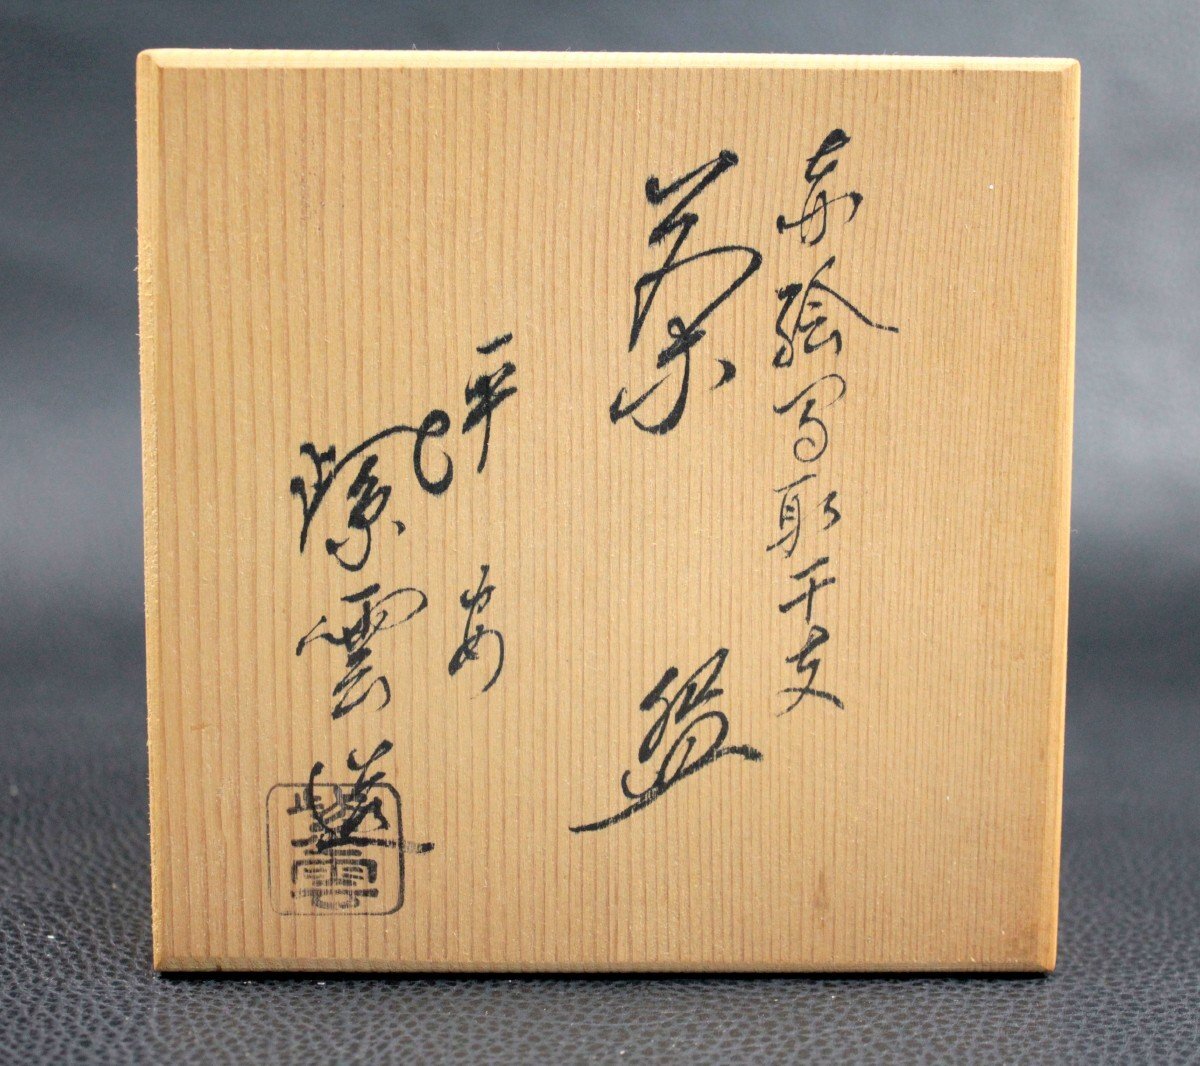 赤絵写取干支
菓盌
平安
紫雲造
紫雲